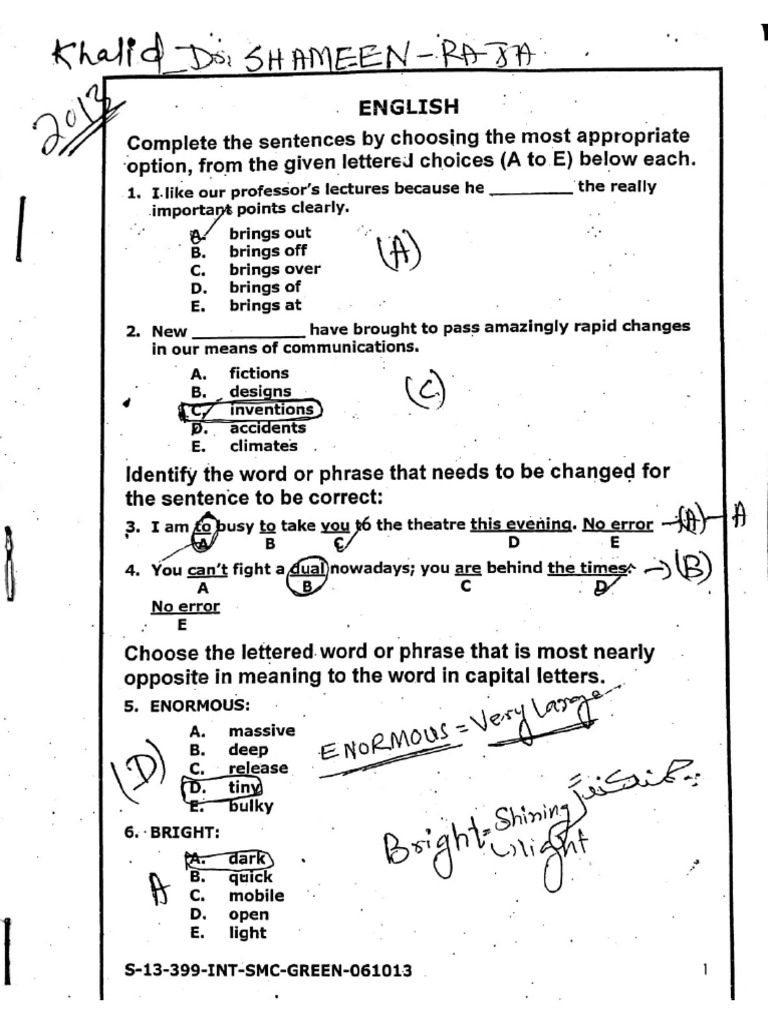 Khalid_Ds; SHAMEEN-RAJA
2013
ENGLISH
Complete the sentences by choosing the most appropriate
option, from the given lettered choices (A to E) below each.
1. I like our professor's lectures because he _________ the really
important points clearly.
A. brings out
B. brings off
C. brings over
D. brings of
E. brings at
(A)
2. New ____________ have brought to pass amazingly rapid changes
in our means of communications.
A. fictions
B. designs
C. inventions
D. accidents
E. climates
(C)
Identify the word or phrase that needs to be changed for
the sentence to be correct:
3. I am to busy to take you to the theatre this evening. No error → (A) - A
A B C D E
4. You can't fight a dual nowadays; you are behind the times. → (B)
A B C D
No error
E
Choose the lettered word or phrase that is most nearly
opposite in meaning to the word in capital letters.
5. ENORMOUS:
A. massive
B. deep
C. release
D. tiny
E. bulky
(D)
ENORMOUS = Very Large
6. BRIGHT:
A. dark
B. quick
C. mobile
D. open
E. light
A
Bright = Shining
light
S-13-399-INT-SMC-GREEN-061013
1